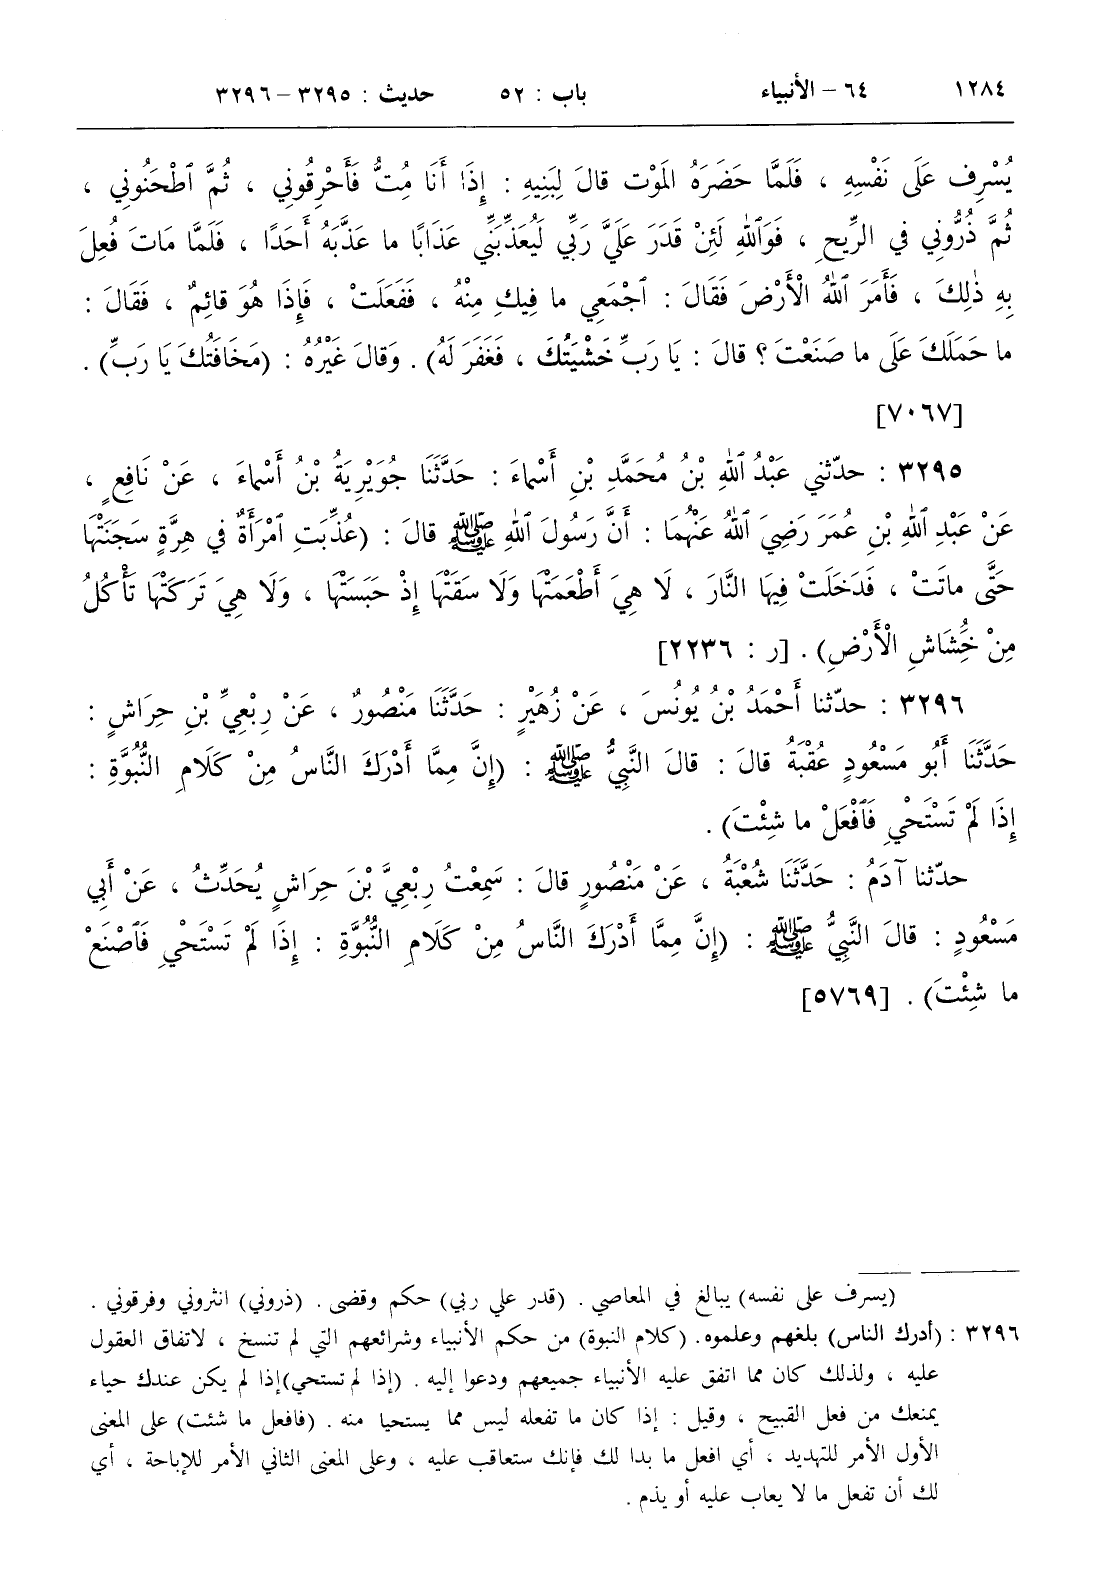 ١٢٨٤ ٦٤ – الأنبياء باب : ٥٢ حديث : ٣٢٩٥–٣٢٩٦
يُسْرِفُ عَلَى نَفْسِهِ ، فَلَمَّا حَضَرَهُ المَوْتُ قالَ لِبَنِيهِ : إِذَا أَنَا مُتُّ فَأَحْرِقُونِي ، ثُمَّ ٱطْحَنُونِي ،
ثُمَّ ذُرُّونِي في الرِّيحِ ، فَوَٱللهِ لَئِنْ قَدَرَ عَلَيَّ رَبِّي لَيُعَذِّبَنِّي عَذَابًا ما عَذَّبَهُ أَحَدًا ، فَلَمَّا مَاتَ فُعِلَ
بِهِ ذٰلِكَ ، فَأَمَرَ ٱللهُ الْأَرْضَ فَقَالَ : ٱجْمَعِي ما فِيكِ مِنْهُ ، فَفَعَلَتْ ، فَإِذَا هُوَ قائِمٌ ، فَقَالَ :
ما حَمَلَكَ عَلَى ما صَنَعْتَ ؟ قالَ : يَا رَبِّ خَشْيَتُكَ ، فَغَفَرَ لَهُ) . وَقالَ غَيْرُهُ : (مَخَافَتُكَ يَا رَبِّ) .
[٧٠٦٧]
٣٢٩٥ : حدّثني عَبْدُ ٱللهِ بْنُ مُحَمَّدِ بْنِ أَسْماءَ : حَدَّثَنَا جُوَيْرِيَةُ بْنُ أَسْماءَ ، عَنْ نَافِعٍ ،
عَنْ عَبْدِ ٱللهِ بْنِ عُمَرَ رَضِيَ ٱللهُ عَنْهُمَا : أَنَّ رَسُولَ ٱللهِ ﷺ قالَ : (عُذِّبَتِ ٱمْرَأَةٌ في هِرَّةٍ سَجَنَتْهَا
حَتَّى ماتَتْ ، فَدَخَلَتْ فِيهَا النَّارَ ، لَا هِيَ أَطْعَمَتْهَا وَلَا سَقَتْهَا إِذْ حَبَسَتْهَا ، وَلَا هِيَ تَرَكَتْهَا تَأْكُلُ
مِنْ خُِشَاشِ الْأَرْضِ) . [ر : ٢٢٣٦]
٣٢٩٦ : حدّثنا أَحْمَدُ بْنُ يُونُسَ ، عَنْ زُهَيْرٍ : حَدَّثَنَا مَنْصُورٌ ، عَنْ رِبْعِيِّ بْنِ حِرَاشٍ :
حَدَّثَنَا أَبُو مَسْعُودٍ عُقْبَةُ قالَ : قالَ النَّبِيُّ ﷺ : (إِنَّ مِمَّا أَدْرَكَ النَّاسُ مِنْ كَلَامِ النُّبُوَّةِ :
إِذَا لَمْ تَسْتَحْيِ فَٱفْعَلْ ما شِئْتَ) .
حدّثنا آدَمُ : حَدَّثَنَا شُعْبَةُ ، عَنْ مَنْصُورٍ قالَ : سَمِعْتُ رِبْعِيَّ بْنَ حِرَاشٍ يُحَدِّثُ ، عَنْ أَبِي
مَسْعُودٍ : قالَ النَّبِيُّ ﷺ : (إِنَّ مِمَّا أَدْرَكَ النَّاسُ مِنْ كَلَامِ النُّبُوَّةِ : إِذَا لَمْ تَسْتَحْيِ فَٱصْنَعْ
ما شِئْتَ) . [٥٧٦٩]
(يسرف على نفسه) يبالغ في المعاصي . (قدر علي ربي) حكم وقضى . (ذروني) انثروني وفرقوني .
٣٢٩٦ : (أدرك الناس) بلغهم وعلموه. (كلام النبوة) من حكم الأنبياء وشرائعهم التي لم تنسخ ، لاتفاق العقول
عليه ، ولذلك كان مما اتفق عليه الأنبياء جميعهم ودعوا إليه . (إذا لم تستحي)إذا لم يكن عندك حياء
يمنعك من فعل القبيح ، وقيل : إذا كان ما تفعله ليس مما يستحيا منه . (فافعل ما شئت) على المعنى
الأول الأمر للتهديد ، أي افعل ما بدا لك فإنك ستعاقب عليه ، وعلى المعنى الثاني الأمر للإباحة ، أي
لك أن تفعل ما لا يعاب عليه أو يذم .